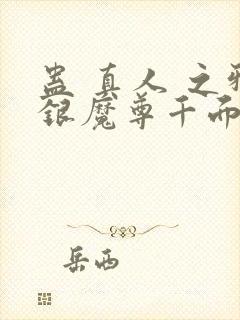 蛊真人之邪
银魔尊千而
岳西